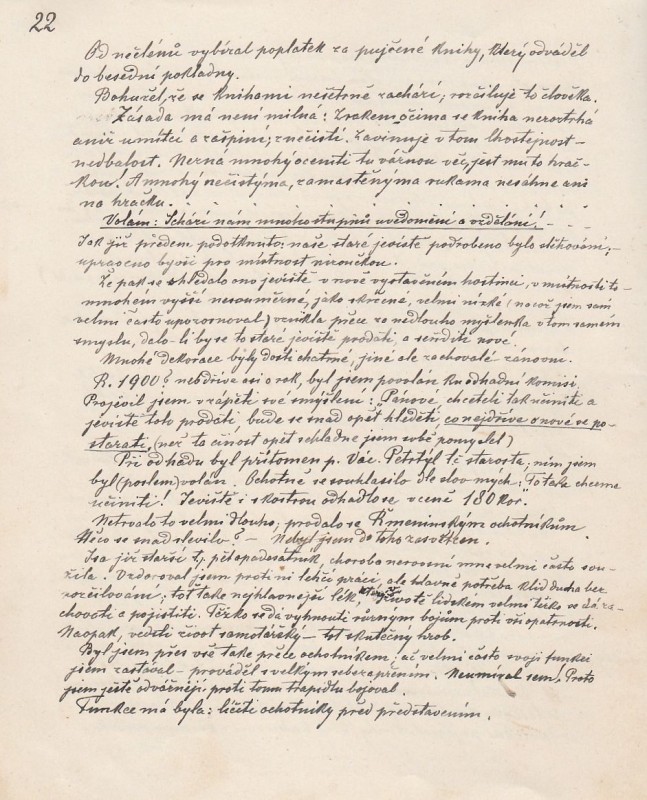 22
Od nečlenů vybíral poplatek za pujčené knihy, který odváděl
do besední pokladny.
Bohužel, že se knihami nešetrně zachází; rozčiluje to člověka.
Zásada má není milná: Zrakem, očima se kniha neroztrhá
aniž umaštcí a zašpiní; znečistí. Zavinuje v tom lhostejnost-
nedbalost. Nezna mnohý oceniti tu vážnou věc, jest mu to hrač-
kou! A mnohý nečistýma, zamaštěnýma rukama nesáhne ani
na hračku.
Volám: Schází nám mnoho stupňů uvědomění a vzdělání!
Jak již předem podotknuto; naše staré jeviště podrobeno bylo stěhování;
upraveno bývši pro místnost nizoučkou.
Že pak se shledalo ono jeviště v nově vystavěném hostinci, v místnosti o-
mnohem vyšší nesouměrné, jako skrčené, velmi nízké (nacož jsem sám
velmi často upozornoval) vznikla přece za nedlouho myšlenka v tom samém
smyslu, dalo-li by se to staré jeviště prodati, a seříditi nové.
Mnohé dekorace byly dosti chatrné, jiné ale zachovalé zánovní.
R. 1900? neb dříve asi o rok, byl jsem povolán ku odhadní komisi.
Projevil jsem vzápětí své smýšlení: "Pánové, chcete-li tak učiniti a
jeviště toto prodati, bude se snad opět hleděti, co nejdříve o nové se po-
starati, (než ta činost opět schladne jsem sobě pomyslel)
Při odhadu byl přítomen p. Vác. Petrtýl t.č. starosta; ním jsem
byl (poslem) volán. Ochotně se souhlasilo dle slov mých; To také chceme
učiniti! Jeviště i skostrou odhadlo se v ceně 180 kor."
Netrvalo to velmi dlouho; prodalo se Kmenínským ochotníkům.
Něco se snad slevilo? — Nebyl jsem do toho zasvětzen.
Jsa již starší t.j. pětapadesátník, choroba nervosní mne velmi často sou-
žila. Vzdoroval jsem proti ní lehčí prácí, ale hlavně potřeba klid ducha bez
rozčilování; tot také nejhlavnější lék, který v životě lidském velmi těžko se dá za-
chovati a pojistiti. Těžko se dá vyhnouti různým bojům proti vší opatrnosti.
Naopak, vedsti život samotářský — tot skutečný hrob.
Byl jsem přes vše také přece ochotníkem, ač velmi často svoji funkci
jsem zastával — prováděl s velkým sebezapřením. Neumíral sem, Proto
jsem ještě odvážněji proti tomu trapidlu bojoval.
Funkce má byla: líčiti ochotníky před představením.